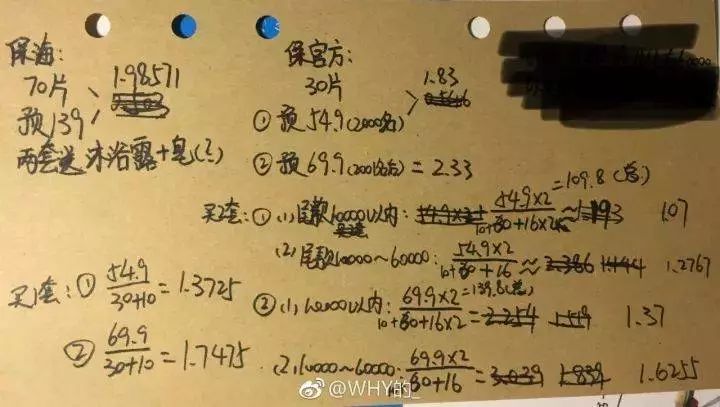 保海:
70片 1.98571
预139
两套送沐浴露+皂(?)
保官方:
30片 1.83
① 预54.9(2000名)
② 预69.9(2001名后)=2.33
买2套:①(1)尾款10000以内: 54.9×2=109.8(总) / 10+60+16×2 ≈ 1.07
(2)尾款10000~60000: 54.9×2 / 10+60+16 ≈ 1.2767
②(1)10000以内: 69.9×2=139.8(总) / 10+60+16×2 = 1.37
(2)10000~60000: 69.9×2 / 60+16 = 1.6255
买1套:① 54.9 / 30+10 = 1.3725
② 69.9 / 30+10 = 1.7475
@WHY的_